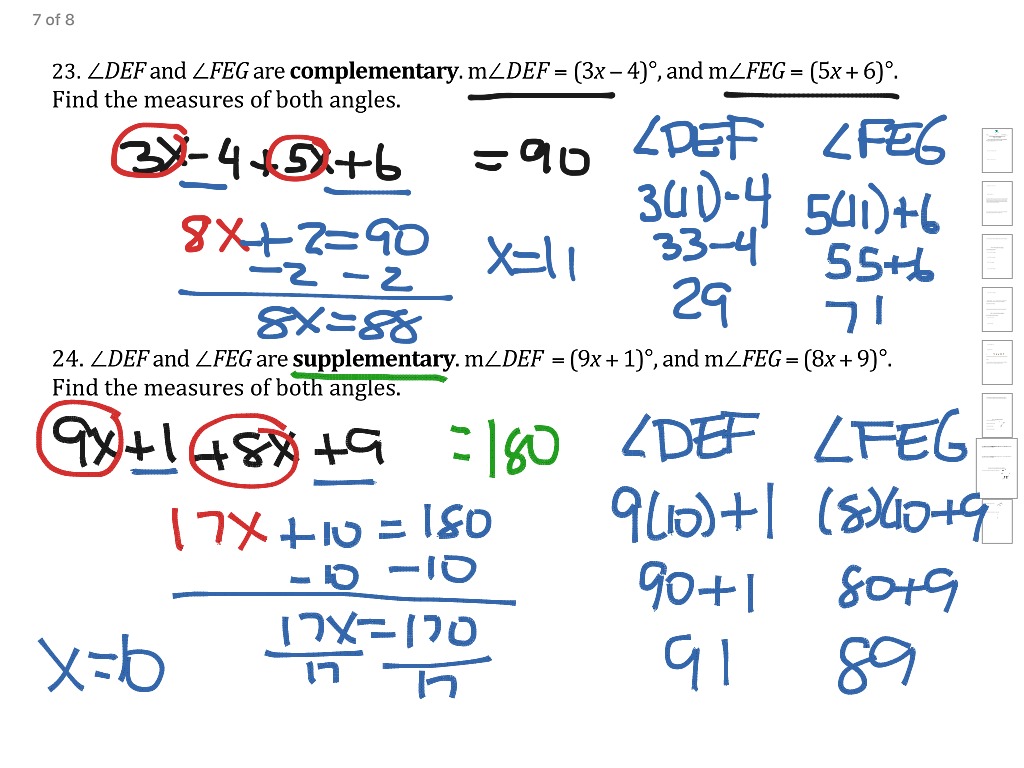 7 of 8
23. ∠DEF and ∠FEG are complementary. m∠DEF = (3x – 4)°, and m∠FEG = (5x + 6)°.
Find the measures of both angles.
3x - 4 + 5x + 6 = 90
8x + 2 = 90
-2 -2
8x = 88
x = 11
∠DEF
3(11) - 4
33 - 4
29
∠FEG
5(11) + 6
55 + 6
71
24. ∠DEF and ∠FEG are supplementary. m∠DEF = (9x + 1)°, and m∠FEG = (8x + 9)°.
Find the measures of both angles.
9x + 1 + 8x + 9 = 180
17x + 10 = 180
- 10 - 10
17x = 170
17 17
x = 10
∠DEF
9(10) + 1
90 + 1
91
∠FEG
(8)(10 + 9
80 + 9
89